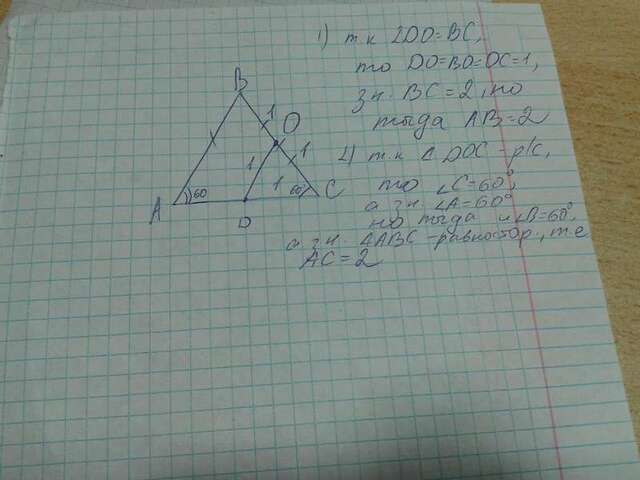 1) т.к 2DO=BC,
то DO=BO=OC=1,
зн. BC=2, но
тогда AB=2
2) т.к △DOC - р/с,
то ∠C=60°,
а зн. ∠A=60°
но тогда и ∠B=60°,
а зн. △ABC - равностор., т.е
AC=2
B
1
O
1
1
A
60
1
60°
C
D